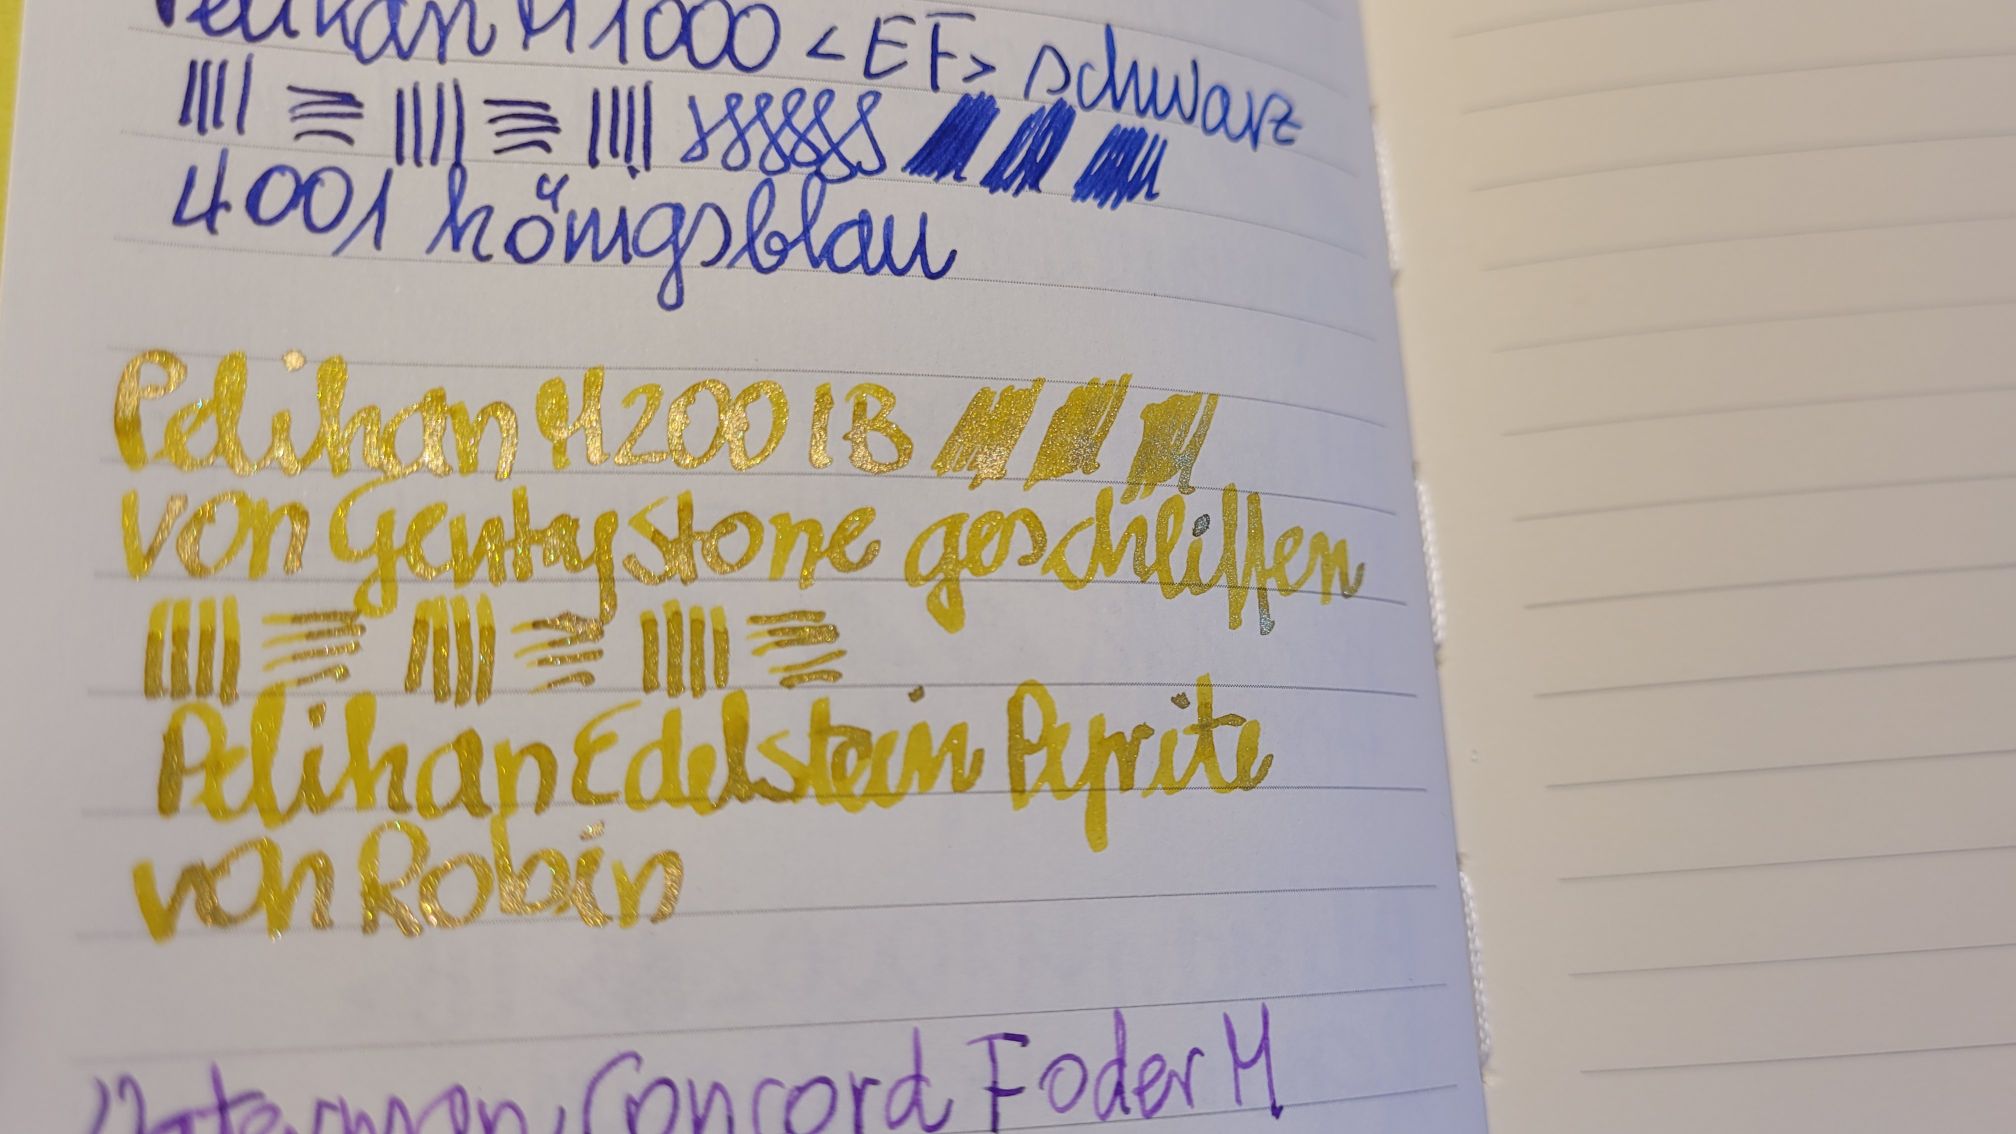 Pelikan M1000 <EF> schwarz
4001 königsblau
Pelikan M200 IB
von Gentystone geschliffen
Pelikan Edelstein Pyrite
von Robin
Concord Feder M